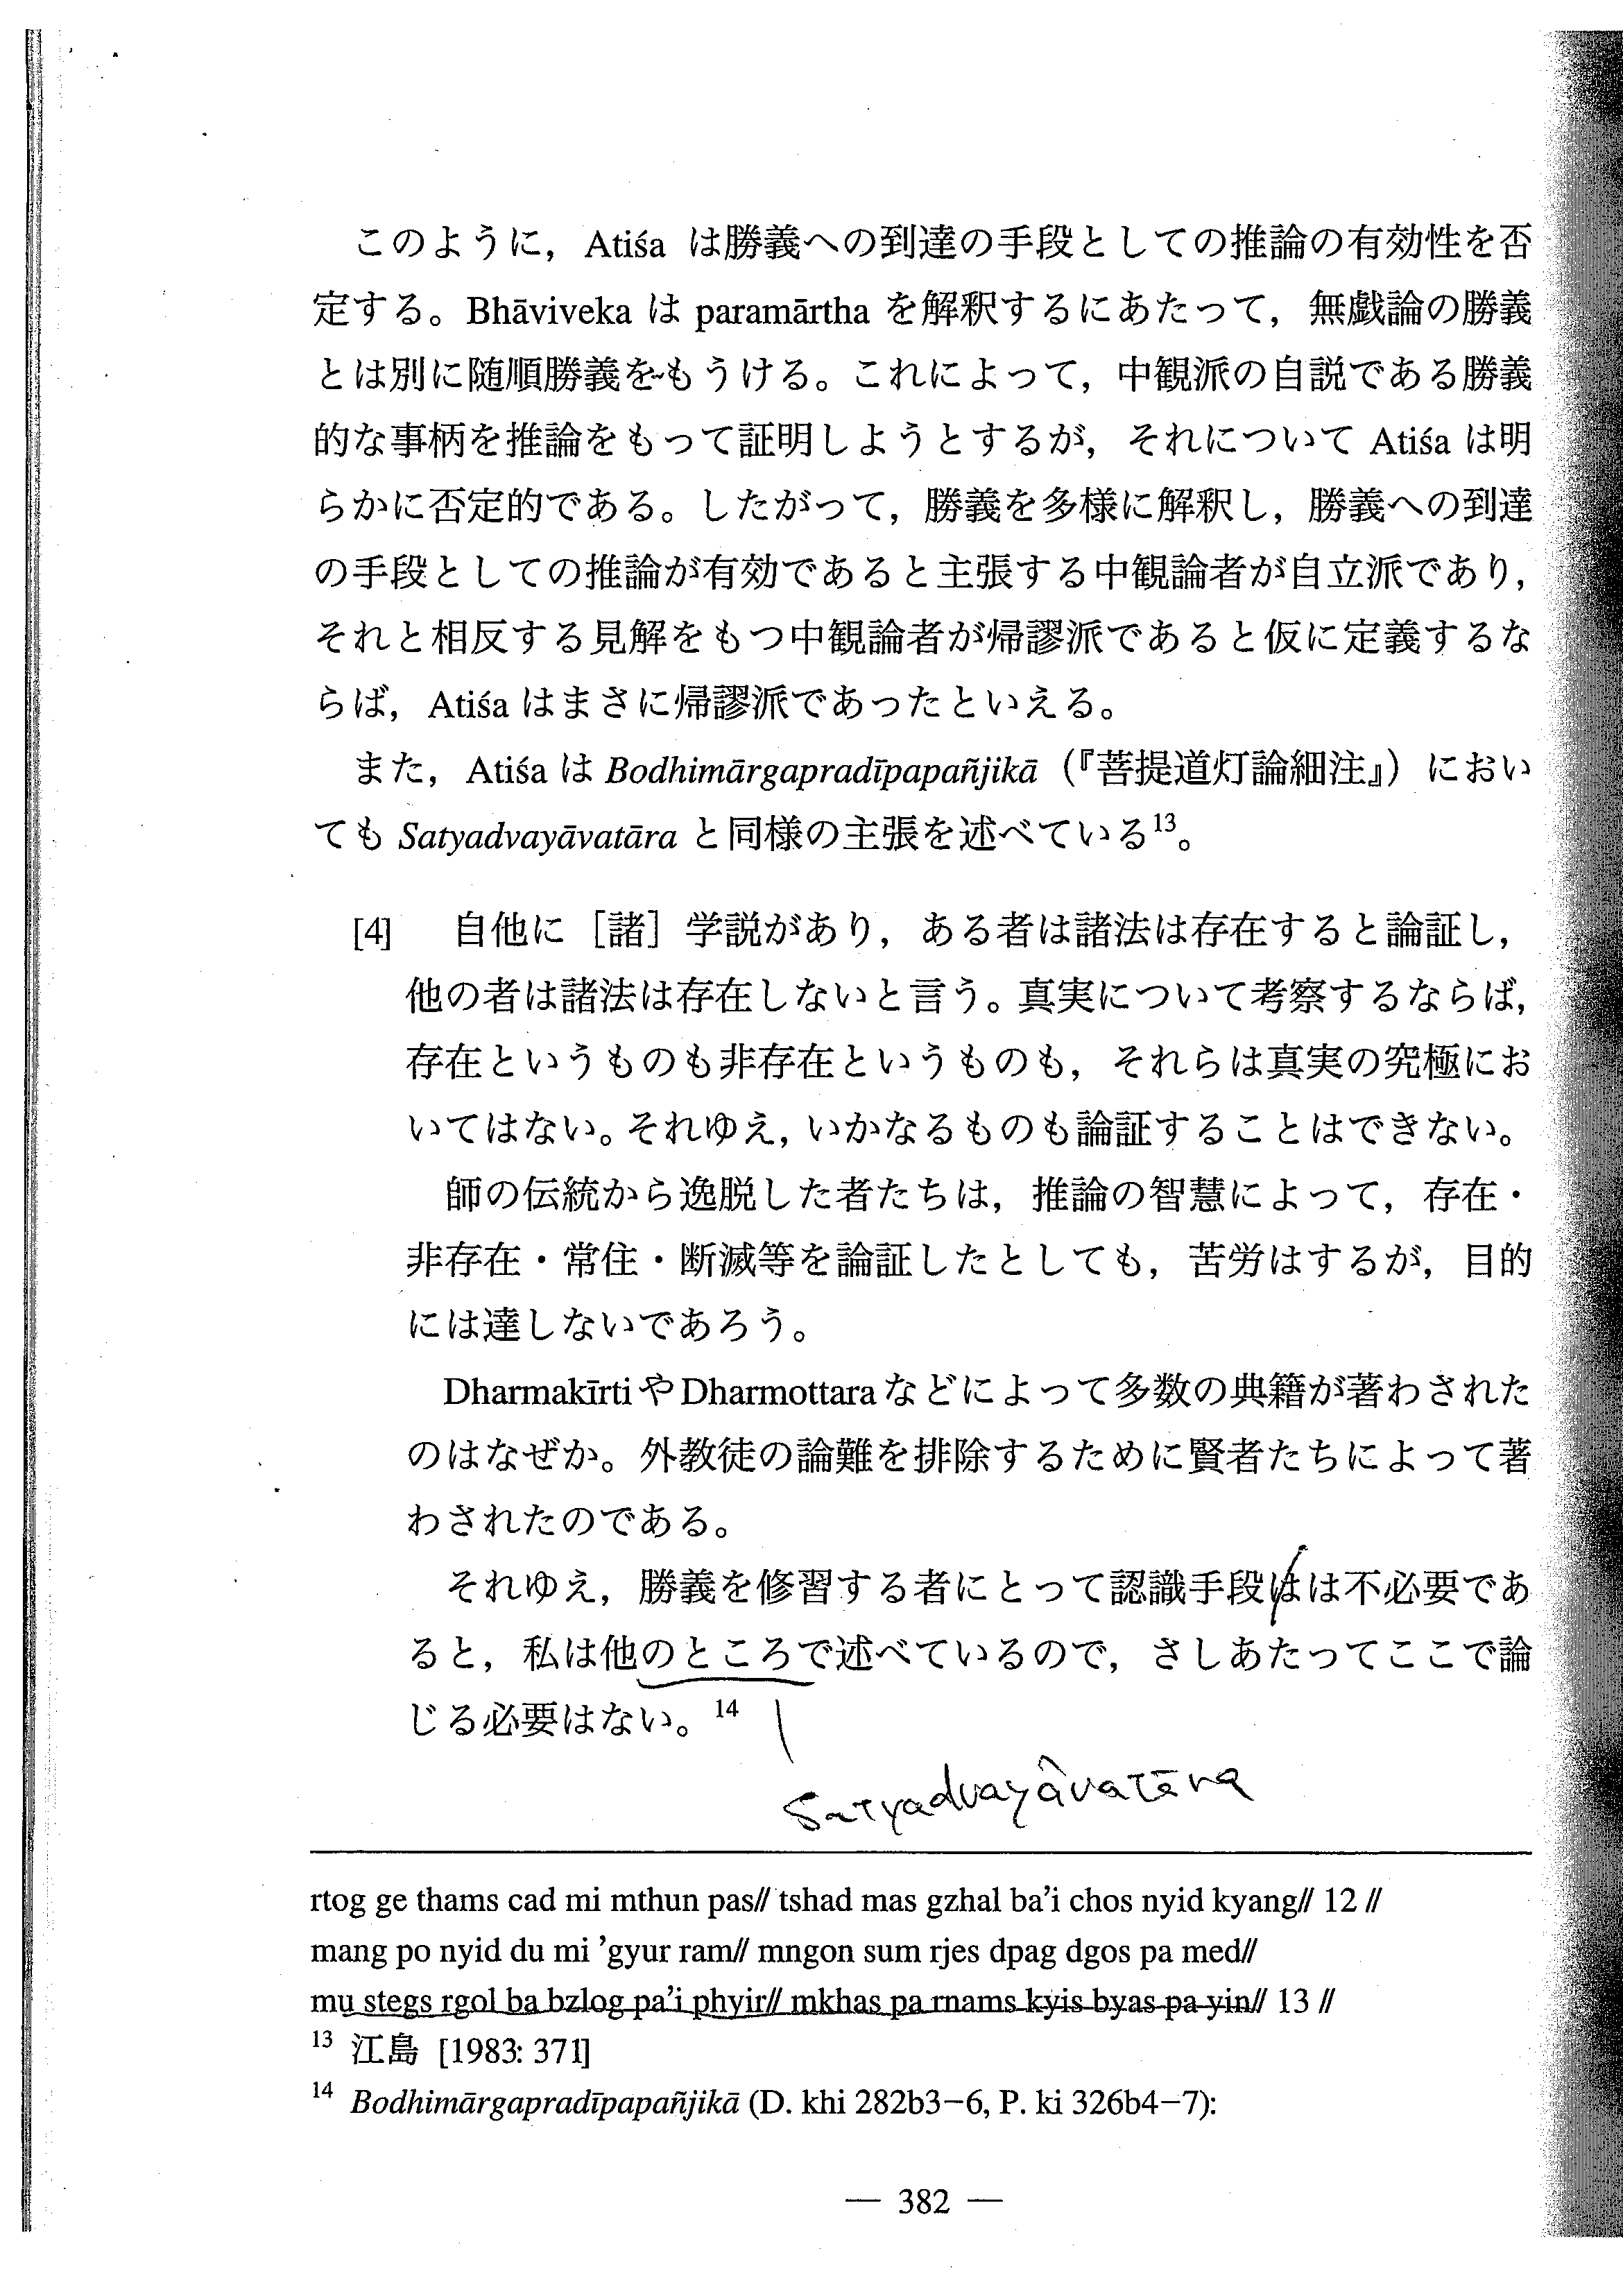 このように，Atiśa は勝義への到達の手段としての推論の有効性を否
定する。Bhāviveka は paramārtha を解釈するにあたって，無戯論の勝義
とは別に随順勝義をもうける。これによって，中観派の自説である勝義
的な事柄を推論をもって証明しようとするが，それについて Atiśa は明
らかに否定的である。したがって，勝義を多様に解釈し，勝義への到達
の手段としての推論が有効であると主張する中観論者が自立派であり，
それと相反する見解をもつ中観論者が帰謬派であると仮に定義するな
らば，Atiśa はまさに帰謬派であったといえる。
また，Atiśa は Bodhimārgapradīpapañjikā（『菩提道灯論細注』）におい
ても Satyadvayāvatāra と同様の主張を述べている13。
[4] 自他に［諸］学説があり，ある者は諸法は存在すると論証し，
他の者は諸法は存在しないと言う。真実について考察するならば，
存在というものも非存在というものも，それらは真実の究極にお
いてはない。それゆえ，いかなるものも論証することはできない。
師の伝統から逸脱した者たちは，推論の智慧によって，存在・
非存在・常住・断滅等を論証したとしても，苦労はするが，目的
には達しないであろう。
Dharmakīrti や Dharmottara などによって多数の典籍が著わされた
のはなぜか。外教徒の論難を排除するために賢者たちによって著
わされたのである。
それゆえ，勝義を修習する者にとって認識手段はは不必要であ
ると，私は他のところで述べているので，さしあたってここで論
じる必要はない。14
Satyadvayâvatāra
rtog ge thams cad mi mthun pas// tshad mas gzhal ba’i chos nyid kyang// 12 //
mang po nyid du mi ’gyur ram// mngon sum rjes dpag dgos pa med//
mu stegs rgol ba bzlog pa’i phyir// mkhas pa rnams kyis byas pa yin// 13 //
13 江島 [1983: 371]
14 Bodhimārgapradīpapañjikā (D. khi 282b3−6, P. ki 326b4−7):
— 382 —